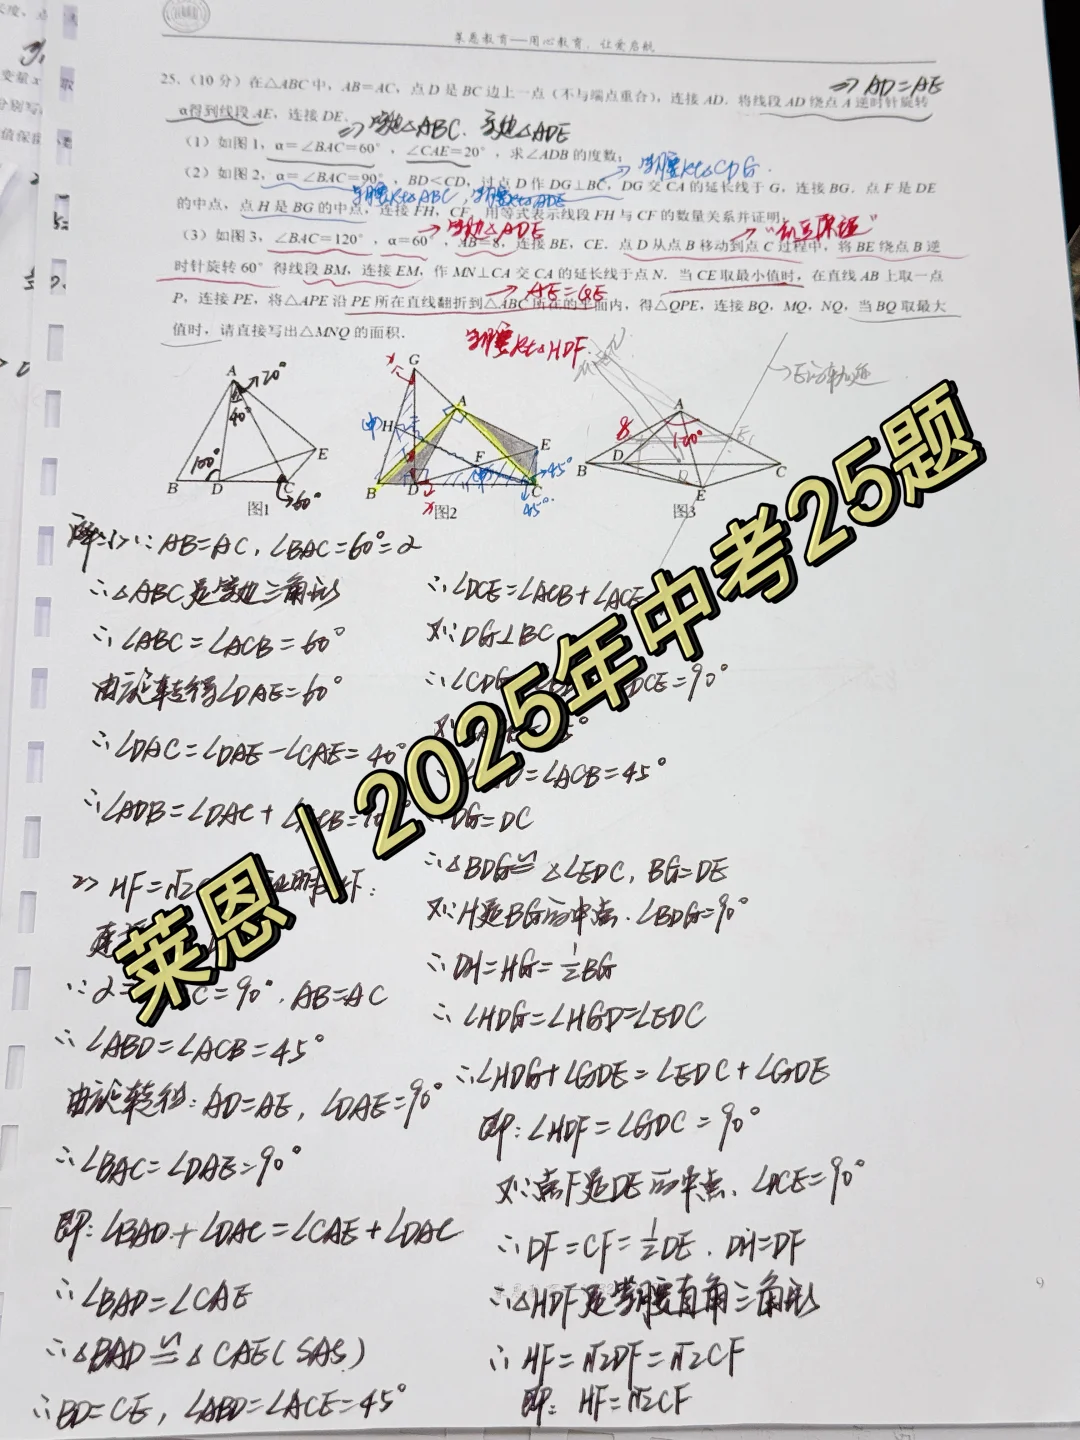 莱恩教育—用心教育，让爱启航
25.（10分）在△ABC中，AB=AC，点D是BC边上一点（不与端点重合），连接AD．将线段AD绕点A逆时针旋转
=> AD=AE
α得到线段AE，连接DE．
=> 等边△ABC．等边△ADE
（1）如图1，α=∠BAC=60°，∠CAE=20°，求∠ADB的度数；
等腰Rt△CDG．
（2）如图2，α=∠BAC=90°，BD<CD，过点D作DG⊥BC，DG交CA的延长线于G，连接BG．点F是DE
等腰Rt△ABC，等腰Rt△ADE
的中点，点H是BG的中点，连接FH，CF．用等式表示线段FH与CF的数量关系并证明；
等边△ADE
（3）如图3，∠BAC=120°，α=60°，AB=8，连接BE，CE．点D从点B移动到点C过程中，将BE绕点B逆
时针旋转60°得线段BM，连接EM，作MN⊥CA交CA的延长线于点N．当CE取最小值时，在直线AB上取一点
AE=QE
P，连接PE，将△APE沿PE所在直线翻折到△ABC所在的平面内，得△QPE，连接BQ，MQ，NQ，当BQ取最大
值时，请直接写出△MNQ的面积．
等腰Rt△HDF．
A
20°
40°
100°
E
B
D
C
60°
图1
x
G
A
H
中
E
F
中
45°
B
D
C
x
45°
图2
A
8
120°
E
D
B
C
E
图3
解：(1)∵AB=AC，∠BAC=60°=α
∴△ABC是等边三角形
∴∠ABC=∠ACB=60°
由旋转得∠DAE=60°
∴∠DAC=∠DAE-∠CAE=40°
∴∠ADB=∠DAC+∠ACB=10
2> HF=√2
∵α= C=90°，AB=AC
∴∠ABD=∠ACB=45°
由旋转得：AD=AE，∠DAE=90°
∴∠BAC=∠DAE=90°
即：∠BAD+∠DAC=∠CAE+∠DAC
∴∠BAD=∠CAE
∴△BAD≌△CAE(SAS)
∴BD=CE，∠ABD=∠ACE=45°
∴∠DCE=∠ACB+∠ACE
又∵DG⊥BC
∴∠CDG= DCE=90°
=∠ACB=45°
DG=DC
∴△BDG≌△EDC，BG=DE
又∵H是BG的中点．∠BDG=90°
∴DH=HG=1/2BG
∴∠HDG=∠HGD=∠EDC
∴∠HDG+∠GDE=∠EDC+∠GDE
即：∠HDF=∠GDC=90°
又∵点F是DE的中点、∠DCE=90°
∴DF=CF=1/2DE．DH=DF
∴△HDF是等腰直角三角形
∴HF=√2DF=√2CF
即：HF=√2CF
莱恩 / 2025年中考25题
9